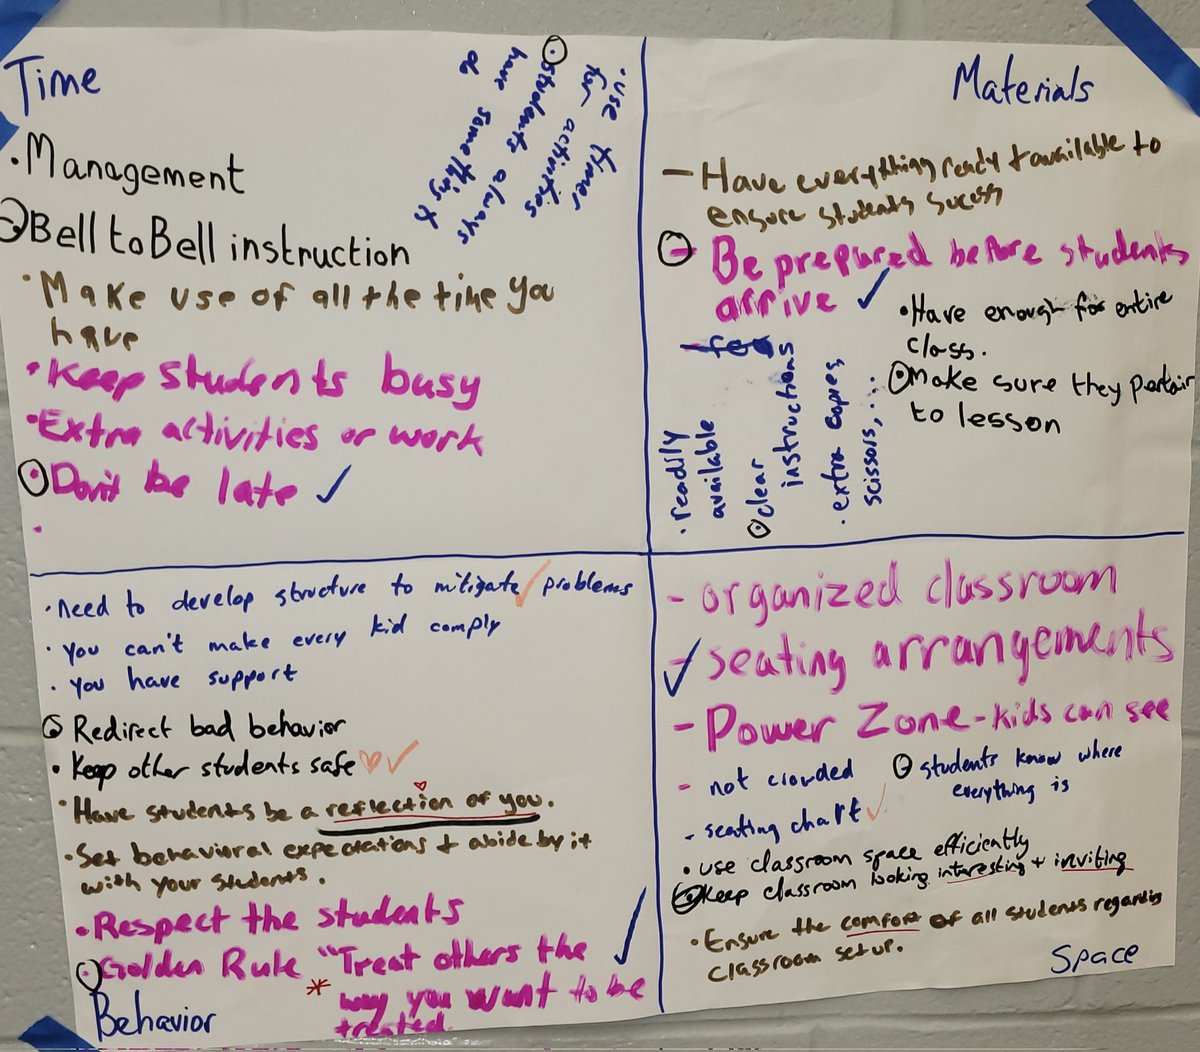 Time
• Management
- Bell to Bell instruction
• Make use of all the time you
have
• Keep students busy
• Extra activities or work
• Don't be late ✓
•
• use timer
for activities
• students always
have something to
do
Materials
- Have everything ready + available to
ensure students sucess
- Be prepared before students
arrive ✓
• Have enough for entire
class.
• Make sure they pertain
to lesson
• readily
available
• clear
instructions
• extra copies,
scissors,...
• need to develop structure to mitigate ✓ problems
• you can't make every kid comply
• you have support
• Redirect bad behavior
• Keep other students safe ♡✓
• Have students be a reflection of you.
• Set behavioral expectations + abide by it
with your students.
• Respect the students
• Golden Rule "Treat others the ✓
* way you want to be
treated.
Behavior
- organized classroom
✓ - seating arrangements
- Power Zone - kids can see
- not crowded
- students know where
everything is
- seating chart ✓
• use classroom space efficiently
• Keep classroom looking interesting + inviting
• Ensure the comfort of all students regarding
classroom setup.
Space